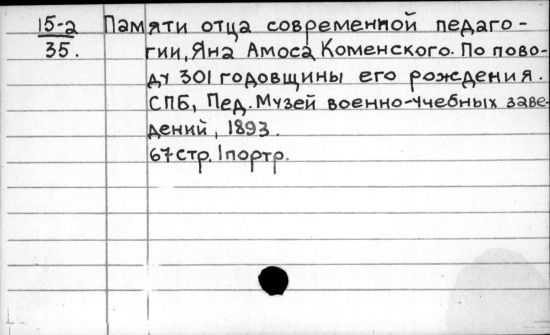 15-2 Памяти отца современной педаго-
35. гии, Яна Амоса Коменского. По пово-
ду 301 годовщины его рождения.
СПБ, Пед. Музей военно-учебных заве-
дений, 1893.
67 стр. 1 портр.